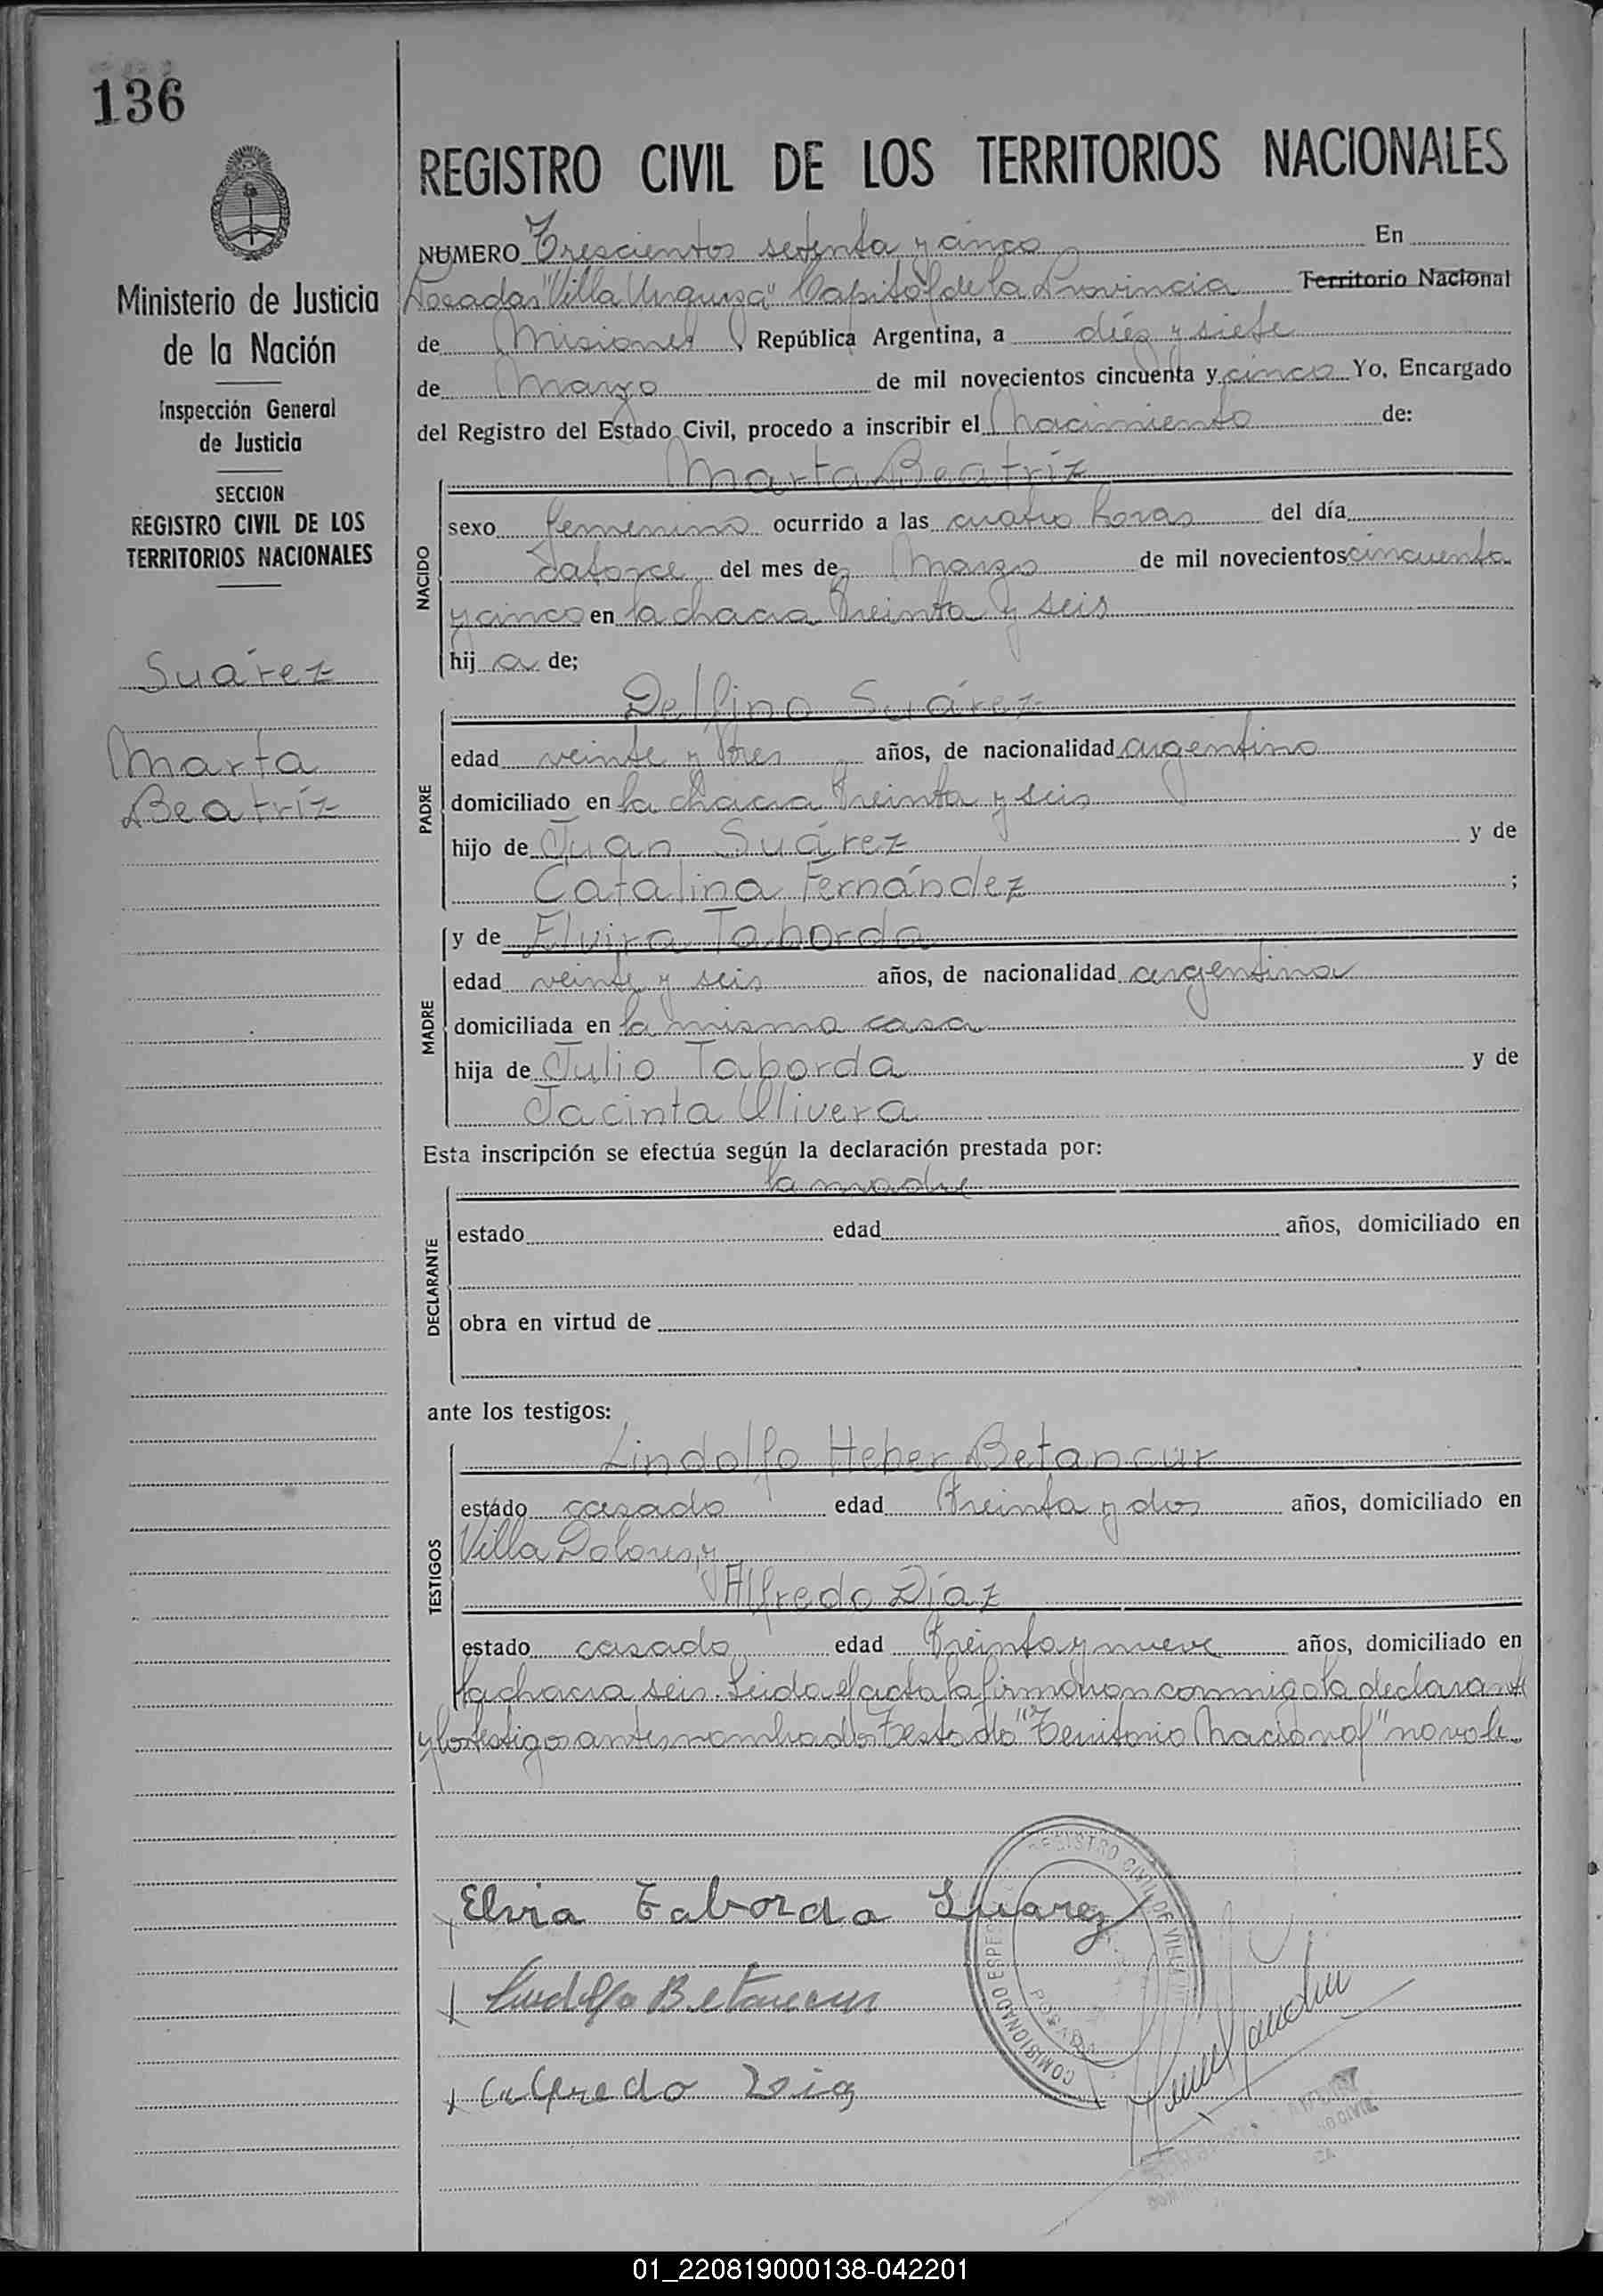 136
REGISTRO CIVIL DE LOS TERRITORIOS NACIONALES
Ministerio de Justicia
de la Nación
Inspección General
de Justicia
SECCION
REGISTRO CIVIL DE LOS
TERRITORIOS NACIONALES
Suárez
Marta
Beatríz
NUMERO Trescientos setenta y cinco En
Posadas "Villa Urquiza" Capital de la Provincia Territorio Nacional
de Misiones, República Argentina, a diez y siete
de Marzo de mil novecientos cincuenta y cinco Yo, Encargado
del Registro del Estado Civil, procedo a inscribir el Nacimiento de:
Marta Beatríz
NACIDO
sexo femenino ocurrido a las cuatro horas del día
catorce del mes de Marzo de mil novecientos cincuenta
y cinco en la chacra treinta y seis
hij a de;
Delfino Suárez
PADRE
edad veinte y tres años, de nacionalidad argentino
domiciliado en la chacra treinta y seis
hijo de Juan Suárez y de
Catalina Fernández ;
y de Elvira Taborda
MADRE
edad veinte y seis años, de nacionalidad argentina
domiciliada en la misma casa
hija de Julio Taborda y de
Jacinta Olivera
Esta inscripción se efectúa según la declaración prestada por:
la madre
DECLARANTE
estado edad años, domiciliado en
obra en virtud de
ante los testigos:
Lindolfo Heber Betancur
TESTIGOS
estado casado edad treinta y dos años, domiciliado en
Villa Dolores, y
Alfredo Díaz
estado casado edad treinta y nueve años, domiciliado en
la chacra seis. Leida el acta la firmaron conmigo la declarante
y los testigos antes nombrados Testado "Territorio Nacional" no vale
Elvia Taborda Suarez
Lindolfo Betancur
Alfredo Diaz
REGISTRO CIVIL DE VILLA
COMISIONADO ESPE
01_220819000138-042201